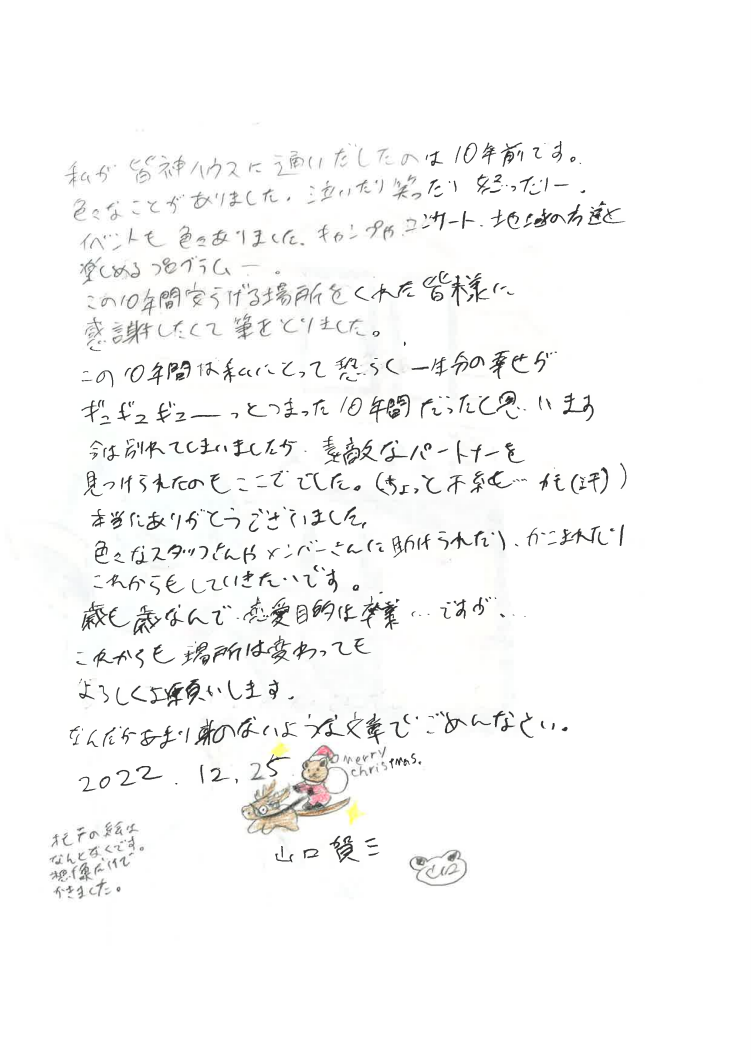 私が皆神ハウスに通いだしたのは10年前です。
色々なことがありました。泣いたり笑ったり怒ったりー。
イベントも色々ありました。キャンプやコンサート、地域の方達と
楽しめるプログラムー。
この10年間安らげる場所をくれた皆様に
感謝したくて筆をとりました。
この10年間は私にとって恐らく一生分の幸せが
ギュギュギューーっとつまった10年間だったと思います
今は別れてしまいましたが、素敵なパートナーを
見つけられたのもここででした。(ちょっと不純… かも(汗))
本当にありがとうございました。
色々なスタッフさんやメンバーさんに助けられたり、かこまれたり
これからもしていきたいです。
歳も歳なんで恋愛目的は卒業…ですが、、
これからも場所は変わっても
よろしくお願いします。
なんだかあまり味のないような文章でごめんなさい。
2022.12.25
merry
christmas.
山口賢三
山口
なんとなくです。
想像だけで
かきました。